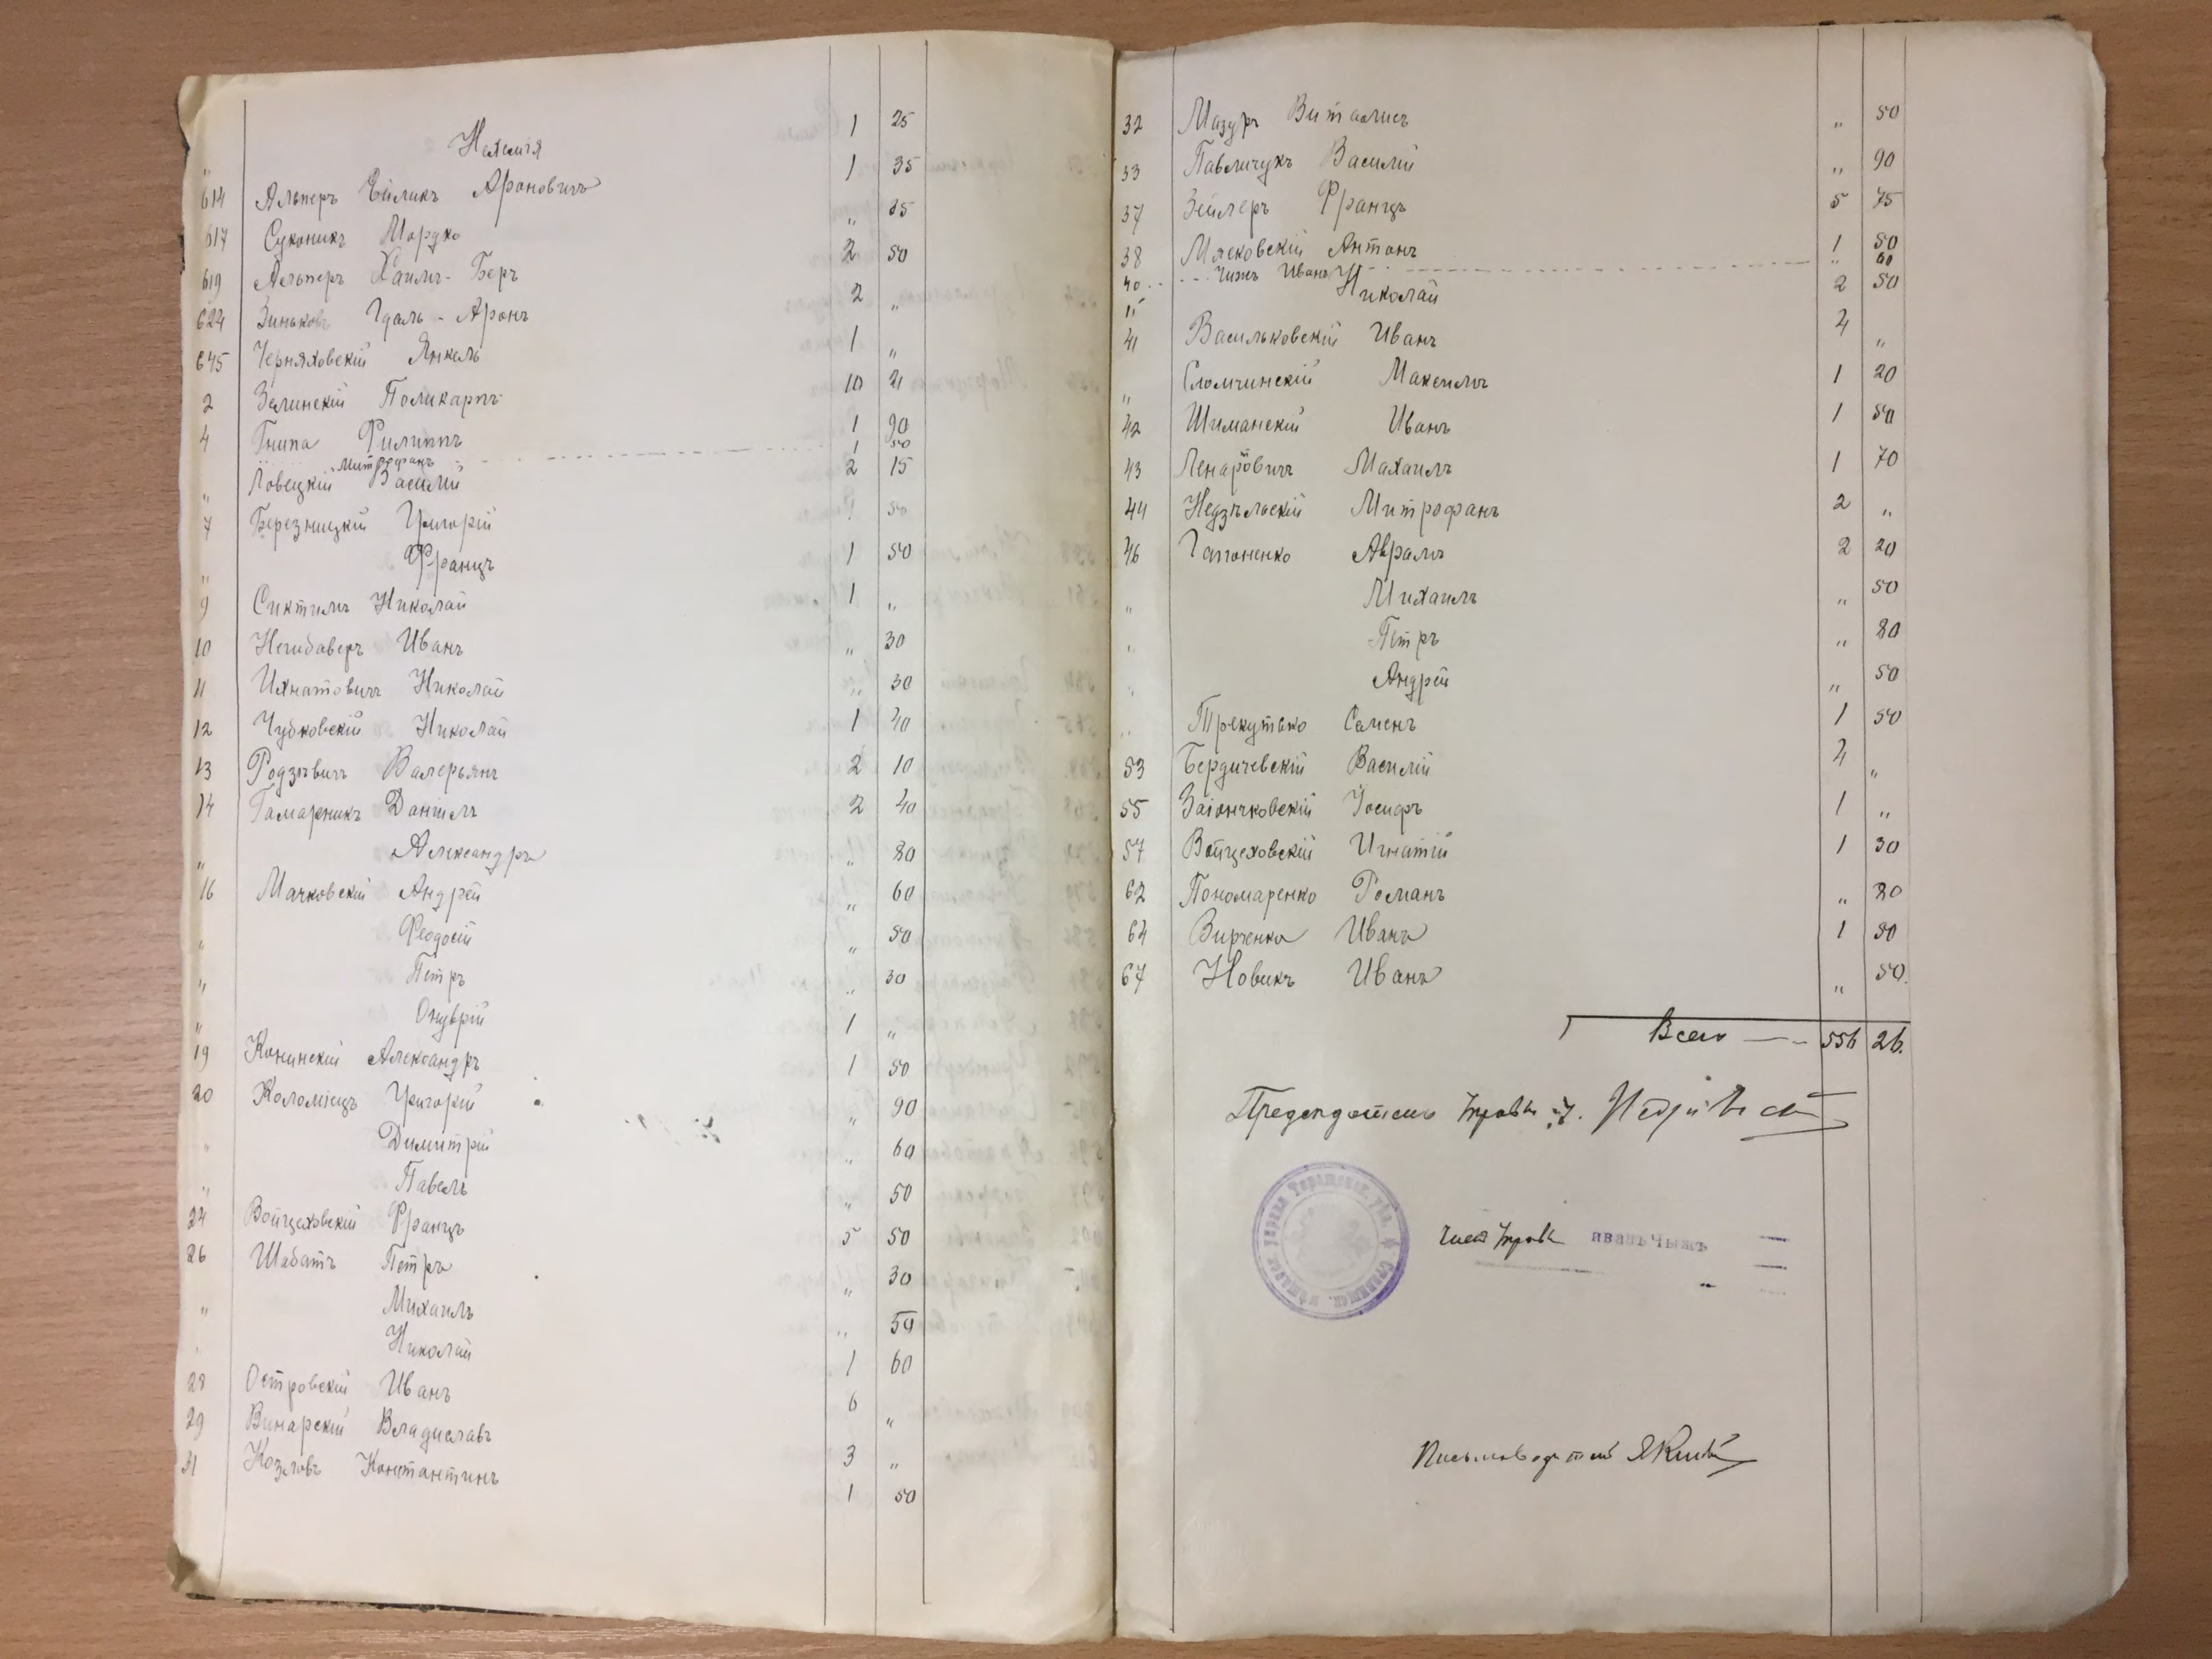 " Нехемія 1 25
614 Альперъ Ейликъ Ароновичъ 1 35
617 Суконикъ Мордко " 85
619 Альперъ Хаимъ-Беръ 2 50
624 Зиньковъ Гдаль-Аронъ 2 "
645 Черняховскій Янкель 1 "
2 Залинскій Поликарпъ 10 21
4 Гнипа Филиппъ 1 90
Митрофанъ 1 50
" Ловецкій Василій 2 15
7 Березницкій Григорій " 50
" Францъ 1 50
9 Сиктимъ Николай 1 "
10 Негибаверъ Иванъ " 30
11 Ихнатовичъ Николай " 30
12 Чубковскій Николай 1 40
13 Родзѣвичъ Валерьянъ 2 10
14 Гамарникъ Даніилъ 2 40
" Александръ " 80
16 Мачковскій Андрей " 60
" Феодосій " 50
" Петръ " 30
" Онуврій 1 "
19 Конинскій Александръ 1 50
20 Коломіецъ Григорій " 90
" Димитрій " 60
" Павелъ " 50
24 Войцеховскій Францъ 5 50
26 Шабатъ Петръ " 30
" Михаилъ " 50
" Николай 1 60
28 Островскій Иванъ 6 "
29 Винарскій Владиславъ 3 "
31 Козловъ Константинъ 1 50
32 Мазуръ Виталисъ " 50
33 Павличукъ Василій " 90
37 Зейлеръ Францъ 5 75
38 Мясковскій Антонъ 1 50
40 Чижъ Иванъ " 60
" Николай 2 50
41 Васильковскій Иванъ 4 "
" Сломчинскій Максимъ 1 20
42 Шиманскій Иванъ 1 50
43 Ленартовичъ Михаилъ 1 70
44 Недзѣльскій Митрофанъ 2 "
46 Гапоненко Аврамъ 2 20
" Михаилъ " 50
" Петръ " 80
" Андрей " 50
" Трекутько Семенъ 1 50
53 Бердичевскій Василій 4 "
55 Заіончковскій Іосифъ 1 "
57 Войцеховскій Игнатій 1 30
62 Пономаренко Романъ " 80
64 Вирченко Иванъ 1 50
67 Новикъ Иванъ " 50.
Всего 556 26.
Предсѣдатель Управы
Ставищск. мѣщанск. управа Таращанск. уѣз.
Член Управы ИванъЧыжъ
Письмоводитель